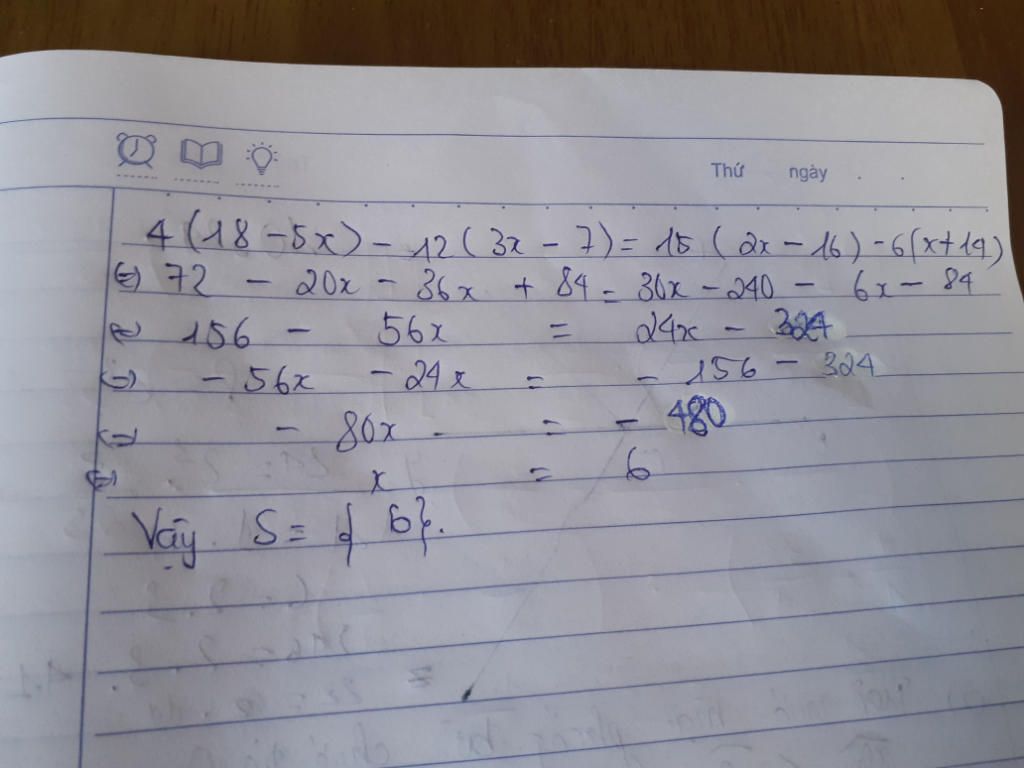 Thứ ngày . .
4(18 - 5x) - 12(3x - 7) = 15(2x - 16) - 6(x + 14)
(=) 72 - 20x - 36x + 84 = 30x - 240 - 6x - 84
(=) 156 - 56x = 24x - 324
(=) - 56x - 24x = - 156 - 324
(=) - 80x = - 480
(=) x = 6
Vậy S = { 6}.